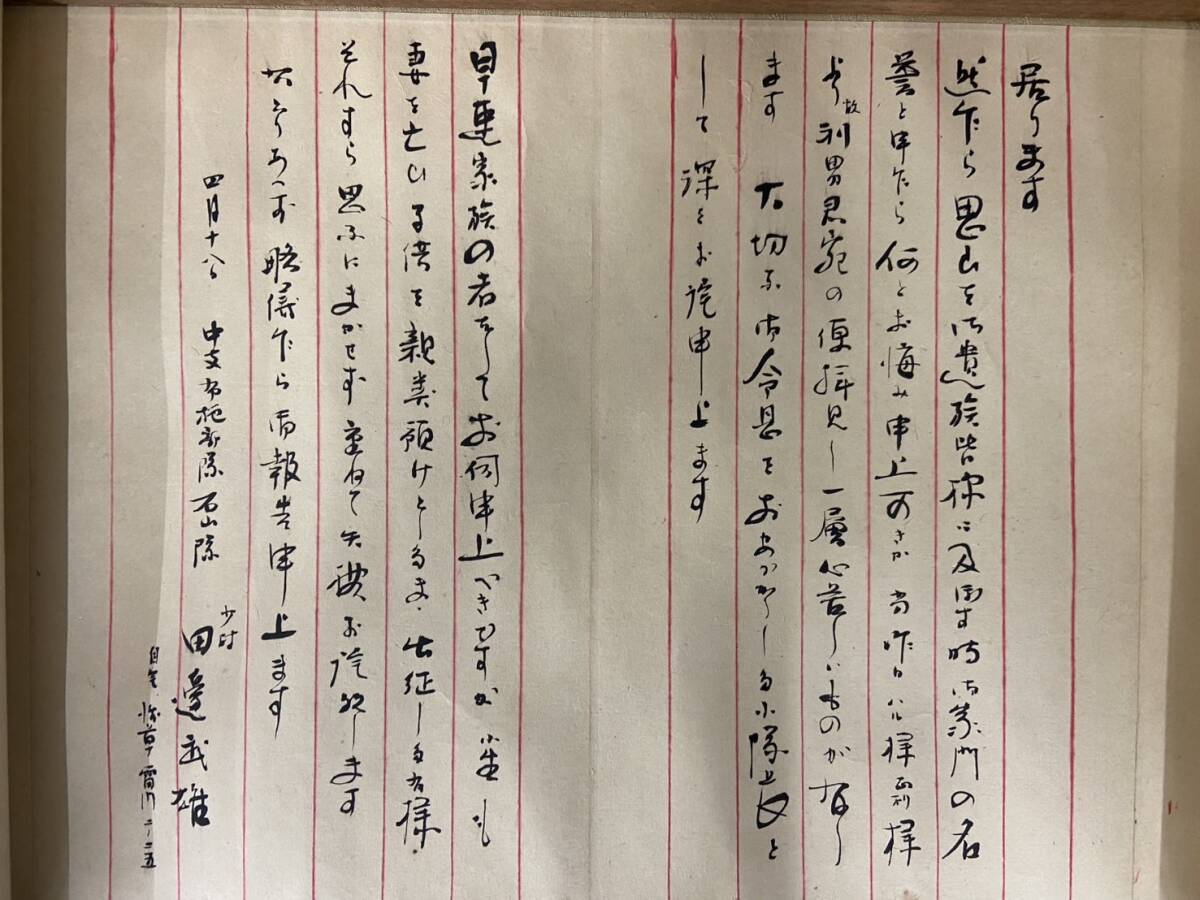 居ります
然乍ら思ひを御遺族皆様に及ぼす時御家門の名
誉と申乍ら何とお悔み申上可きか 尚昨日ハル様 様
より故利男君宛の便拝見し一層心苦しいものがあし
ます 大切な御令息をおあづかりし小隊長と
して深くお詫申上ます
早速家族の者をしてお伺申上べきですが小生も
妻を亡ひ子供を親類預けとしたまゝ出征した有様
それすら思ふにまかせず重ねて失礼お詫致します
取りあへず略儀乍ら御報告申上ます
四月十八日 中支 部隊石山隊
少尉 田邊武雄
自宅 浅草 雷門二ノ二五